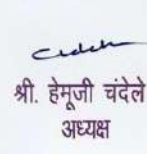 श्री. हेमूजी चंदेले
अध्यक्ष